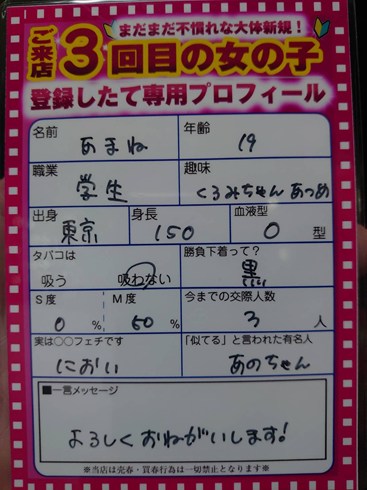 まだまだ不慣れな大体新規！
ご来店3回目の女の子
登録したて専用プロフィール
名前 あまね 年齢 19
職業 学生 趣味 くるみちゃんあつめ
出身 東京 身長 150 血液型 O 型
タバコは 吸う 吸わない 勝負下着って？ 黒
S度 0 % M度 60 % 今までの交際人数 3 人
実は〇〇フェチです におい 「似てる」と言われた有名人 あのちゃん
■一言メッセージ
よろしくおねがいします!
※当店は売春・買春行為は一切禁止となります※